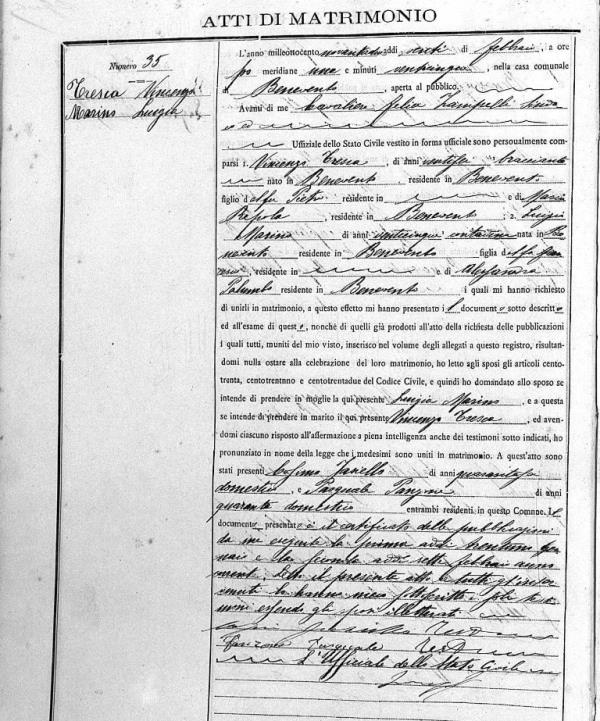 ATTI DI MATRIMONIO
Numero 35
Tresca Vincenzo
Marino Luigia
L'anno milleottocento novantadue addì venti di febbraio, a ore
pom meridiane una e minuti venticinque, nella casa comunale
di Benevento, aperta al pubblico.
Avanti di me Cavaliere
Uffiziale dello Stato Civile vestito in forma uffiziale sono personalmente com-
parsi 1. Vincenzo Tresca, di anni bracciante
nato in Benevento, residente in Benevento
figlio del fu Pietro residente in e di Maria
Repola, residente in Benevento; 2. Luigia
Marino di anni venticinque contadina nata in Be-
nevento residente in Benevento figlia del fu Fran-
cesco, residente in e di Alessandra
Palumbo residente in Benevento i quali mi hanno richiesto
di unirli in matrimonio, a questo effetto mi hanno presentato il documento sotto descritto
ed all'esame di questo, nonchè di quelli già prodotti all'atto della richiesta delle pubblicazioni
i quali tutti, muniti del mio visto, inserisco nel volume degli allegati a questo registro, risultan-
domi nulla ostare alla celebrazione del loro matrimonio, ho letto agli sposi gli articoli cento-
tronta, centotrentuno e centotrentadue del Codice Civile, e quindi ho domandato allo sposo se
intende di prendere in moglie la qui presente Luigia Marino, e a questa
se intende di prendere in marito il qui presente Vincenzo Tresca, ed aven-
domi ciascuno risposto affermazione a piena intelligenza anche dei testimoni sotto indicati, ho
pronunziato in nome della legge che i medesimi sono uniti in matrimonio. A quest'atto sono
stati presenti Cosimo Janello di anni quarantasei
domestico, e Pasquale Panzone di anni
quaranta domestico entrambi residenti in questo Comune. Il
documento presentato è il certificato delle pubblicazioni
da me eseguite la prima addì trentuno gen-
naio e la seconda addì sette febbraio anno
corrente. Letto il presente atto a tutti gl'inter-
venuti lo hanno meco sottoscritto i soli testi-
moni essendo gli sposi illetterati
Panzone Pasquale Test
L'Uffiziale dello Stato Civile